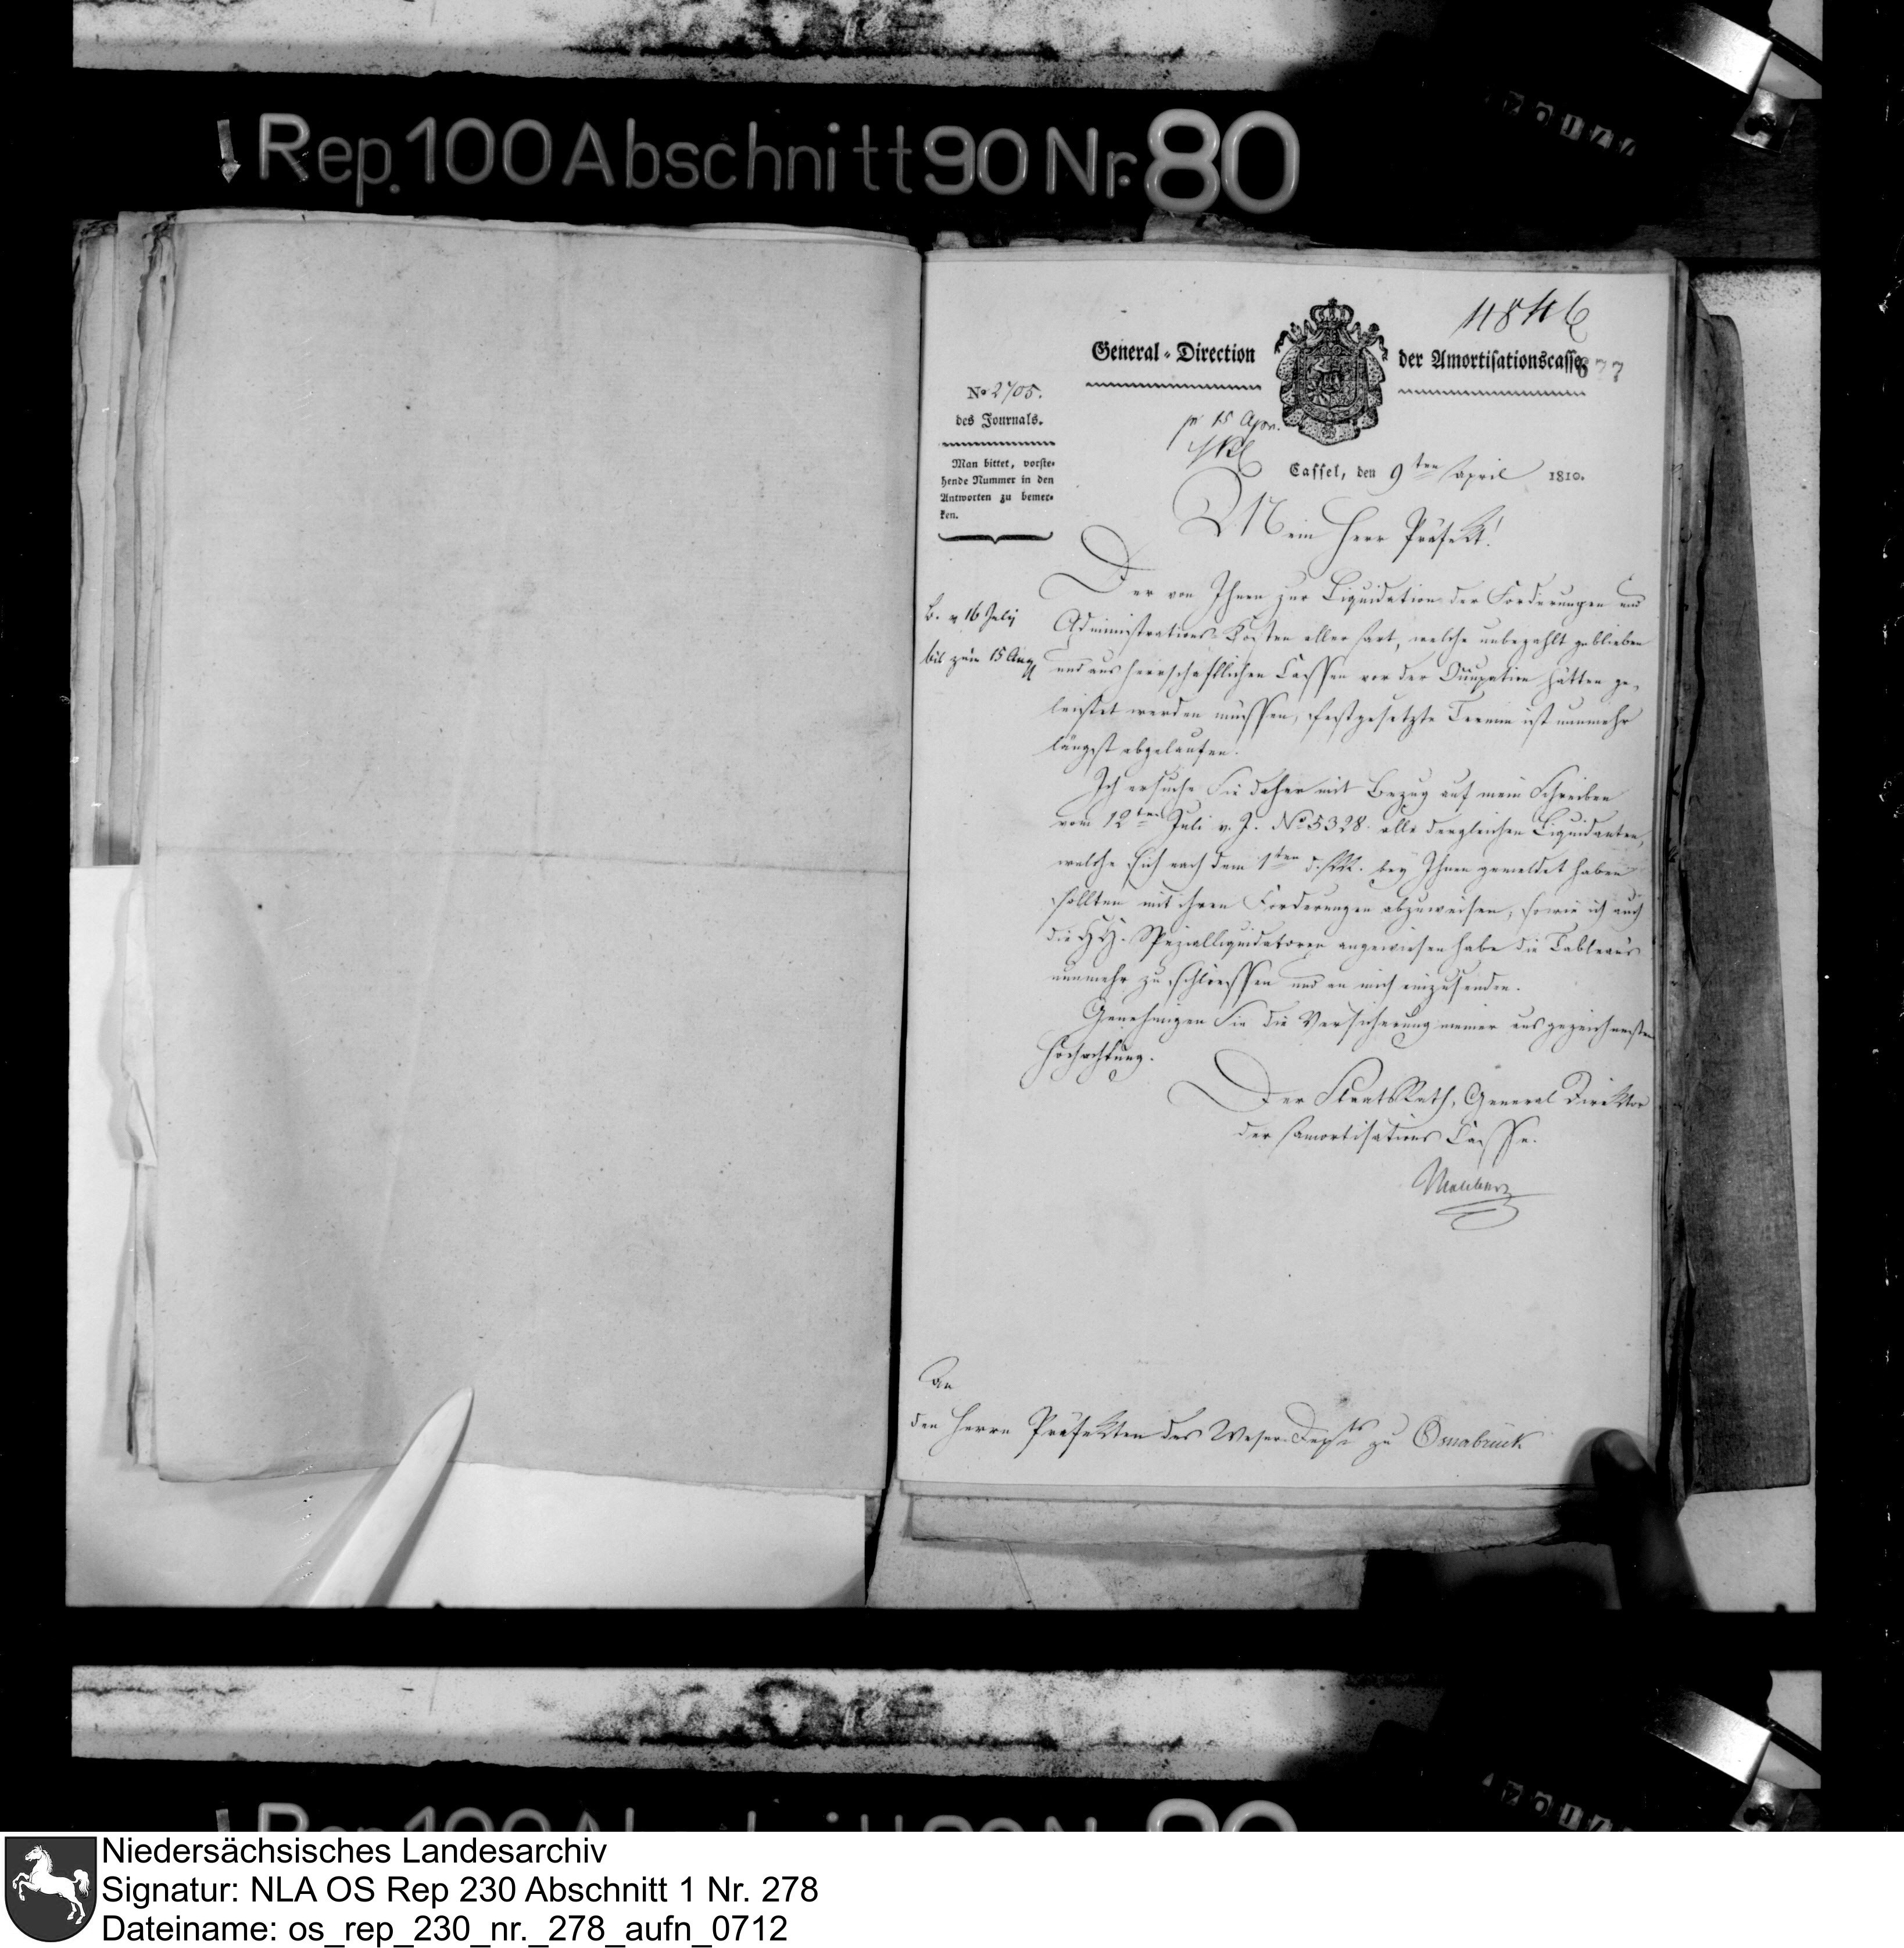 Rep. 100 Abschnitt 90 Nr. 80
4846
General-Direction der Amortisationscasse
677
No 2705.
des Journals.
pr 15 Apr.
Man bittet, vorste-
hende Nummer in den
Antworten zu bemer-
ken.
Cassel, den 9ten April 1810.
Mein Herr Präfekt!
B. v 16 July
bis zum 15 Aug
Der von Ihnen zur Liquidation der Forderungen und
Administrations-Kosten aller Art, welche unbezahlt geblieben
und aus herrschaftlichen Cassen vor der Occupation hätten ge-
leistet werden müssen, festgesetzte Termin ist nunmehr
längst abgelaufen.
Ich ersuche Sie daher mit Bezug auf mein Schreiben
vom 12ten Juli v. J. No 5328. alle dergleichen Liquidanten,
welche sich nach dem 1ten d. M. bey Ihnen gemeldet haben
sollten mit ihren Forderungen abzuweisen, sowie ich auch
die HH. Spezialliquidatoren angewiesen habe die Tableaus
nunmehr zu schliessen und an mich einzusenden.
Genehmigen Sie die Versicherung meiner ausgezeichneten
Hochachtung.
Der StaatsRath, General Direktor
der Amortisations Casse.
Malchus
An
den Herrn Präfekten des Weser-Depts zu Osnabrück
Niedersächsisches Landesarchiv
Signatur: NLA OS Rep 230 Abschnitt 1 Nr. 278
Dateiname: os_rep_230_nr._278_aufn_0712